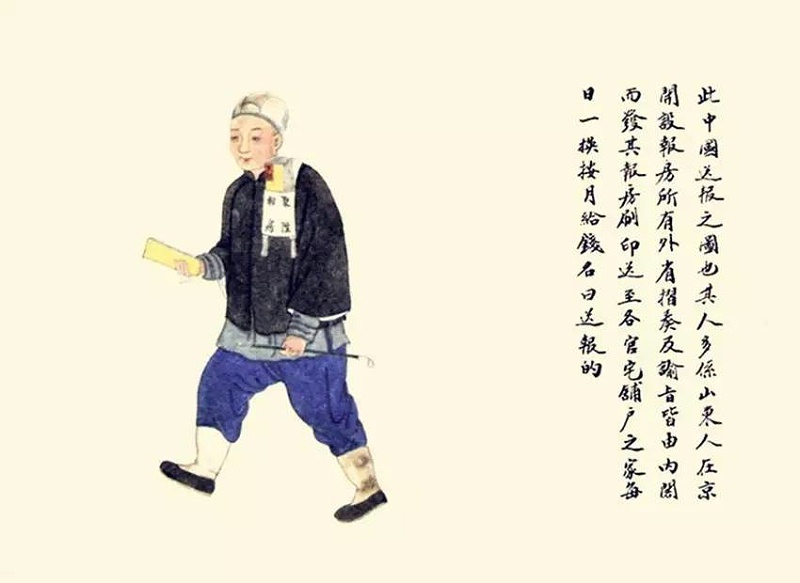 此中國送報之圖也其人多係山東人在京
開設報房所有外省摺奏及諭旨皆由内閣
而發其報房刷印送至各官宅舖戶之家每
日一換按月給錢名曰送報的
陞
報房